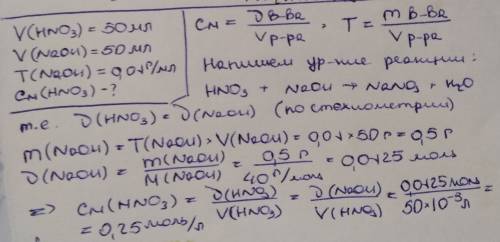 V(HNO₃) = 50 мл
V(NaOH) = 50 мл
T(NaOH) = 0,01 г/мл
Cм(HNO₃) - ?
Cм = ν в-ва / V р-ра , T = m в-ва / V р-ра
Напишем ур-ние реакции:
HNO₃ + NaOH → NaNO₃ + H₂O
т.е. ν(HNO₃) = ν(NaOH) (по стехиометрии)
m(NaOH) = T(NaOH) · V(NaOH) = 0,01 × 50 г = 0,5 г
ν(NaOH) = m(NaOH) / M(NaOH) = 0,5 г / 40 г/моль = 0,0125 моль
=> Cм(HNO₃) = ν(HNO₃) / V(HNO₃) = ν(NaOH) / V(HNO₃) = 0,0125 моль / 50×10⁻³ л =
= 0,25 моль/л